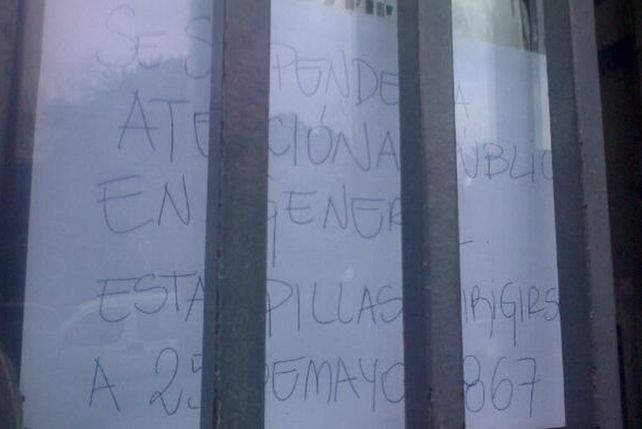 SE SUSPENDE LA
ATENCIÓN AL PÚBLICO
EN GENERAL
ESTAMPILLAS DIRIGIRSE
A 25 DE MAYO 867